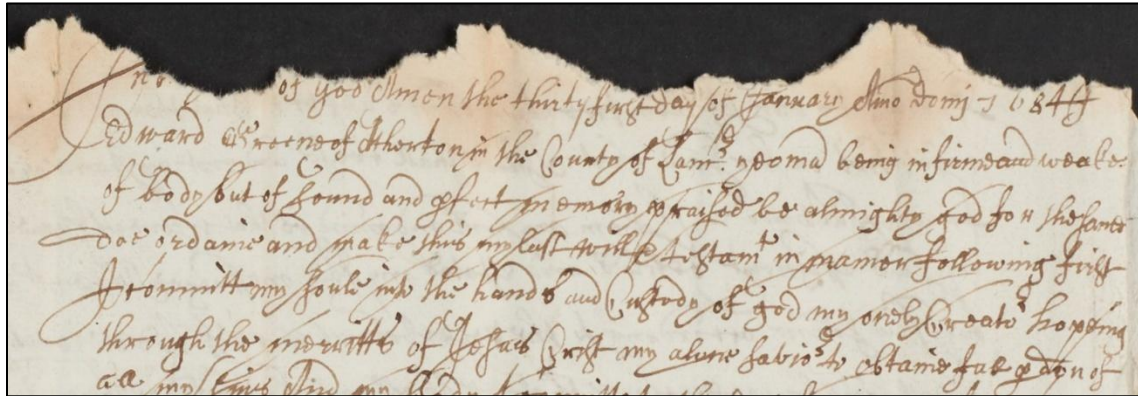 of god Amen the thirty first day of January Ano Domj 1684 I
Edward Greene of Atherton in the County of Lancr yeoma being infirme and weake
of body but of sound and pfect memory praised be almighty god for the same
doe ordaine and make this my last will & testamt in manner following first
I committ my soule into the hands and Custody of god my onely Creator hopeing
through the merritts of Jesus Crist my alone savior to obtaine full pdon of
all my sinns And my body